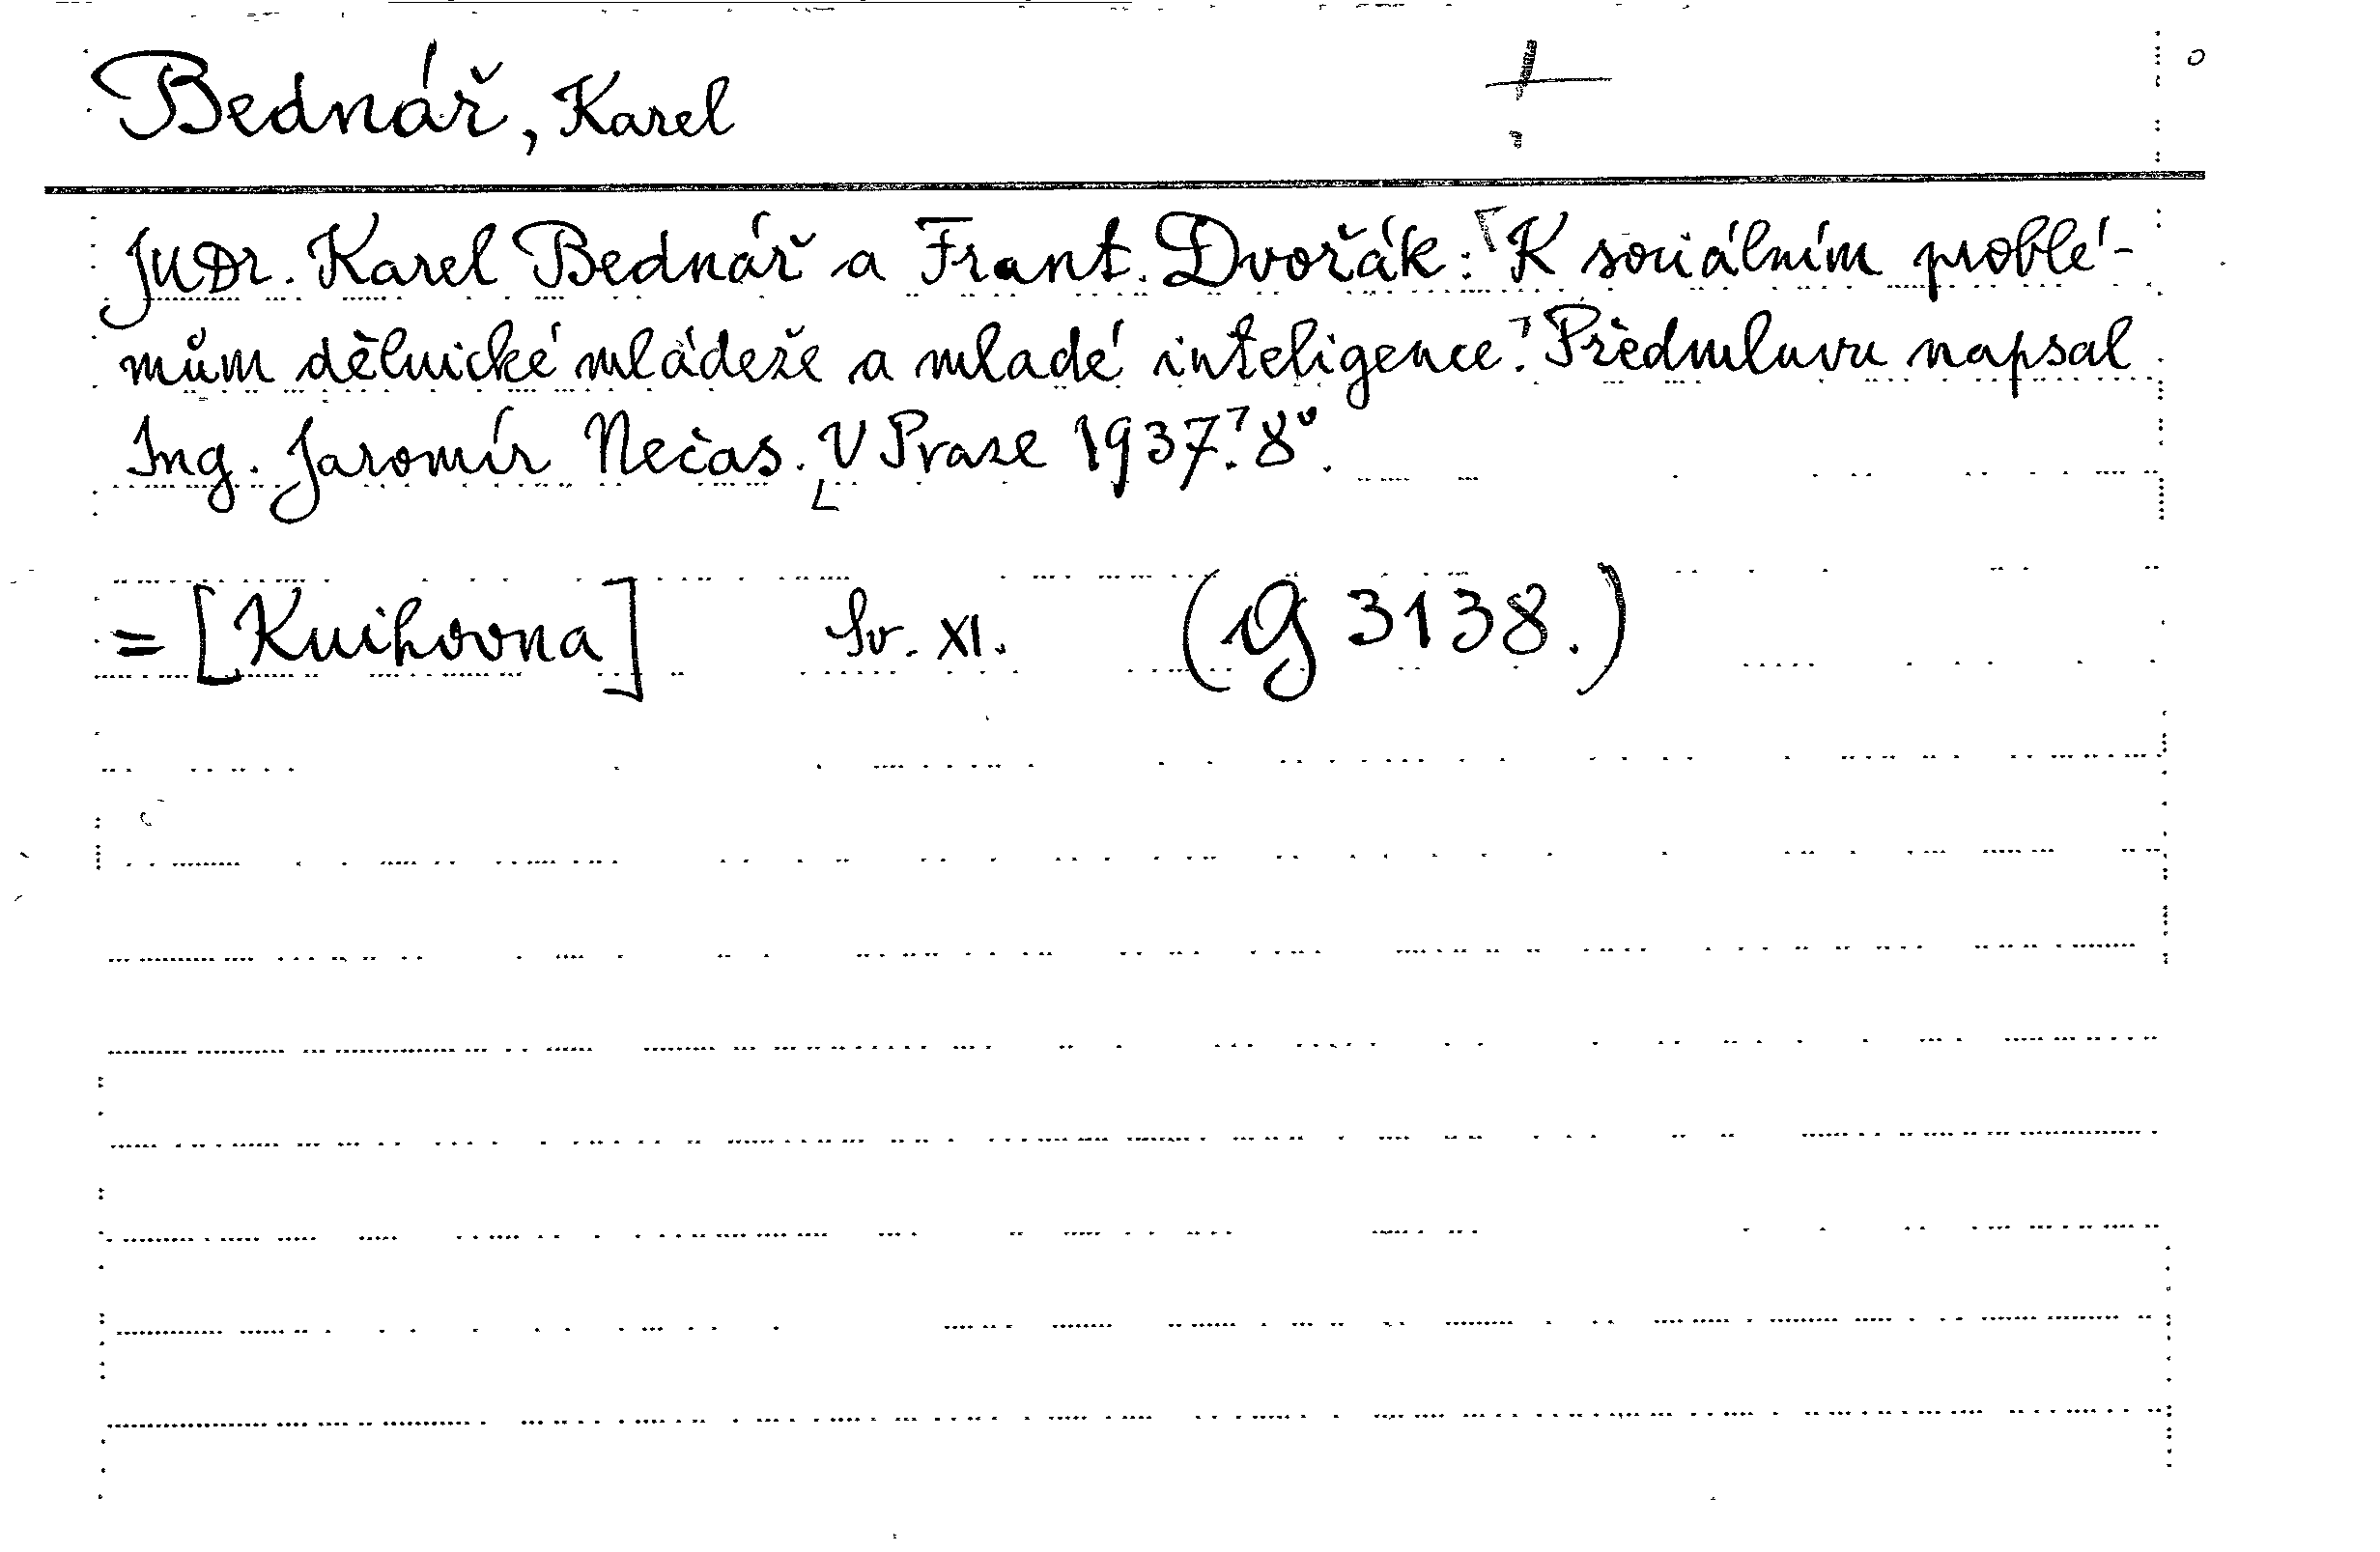 Bednář, Karel
JUDr. Karel Bednář a Frant. Dvořák: K sociálním problé-
mům dělnické mládeže a mladé inteligence. Předmluvu napsal
Ing. Jaromír Nečas. V Praze 1937. 8°.
= [Knihovna] Sv. XI. (G 3138.)